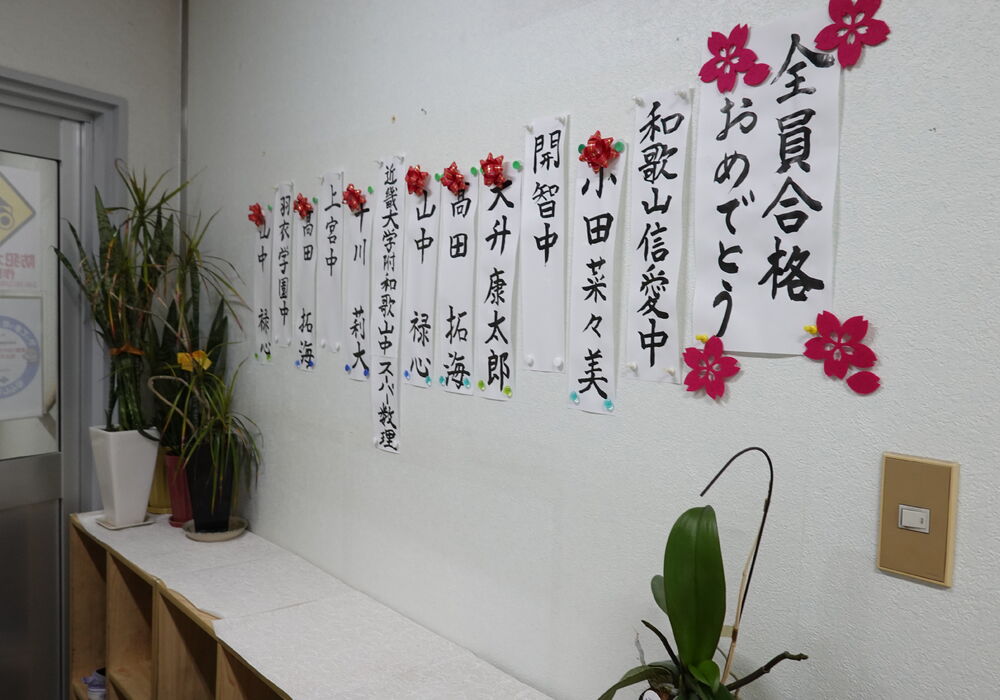 全員合格
おめでとう
和歌山信愛中
小田菜々美
開智中
大升康太郎
高田 拓海
山中 禄心
近畿大学附和歌山中スーパー数理
千川 莉大
上宮中
高田 拓海
羽衣学園中
山中 禄心
防犯